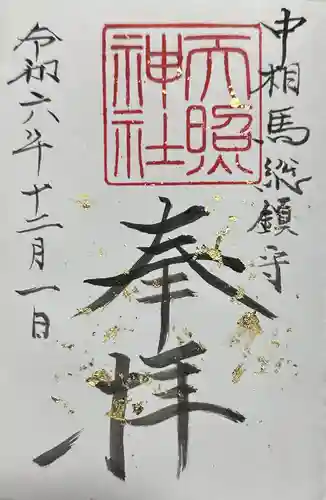 中相馬総鎮守
天照
神社
奉拝
令和六年十二月一日